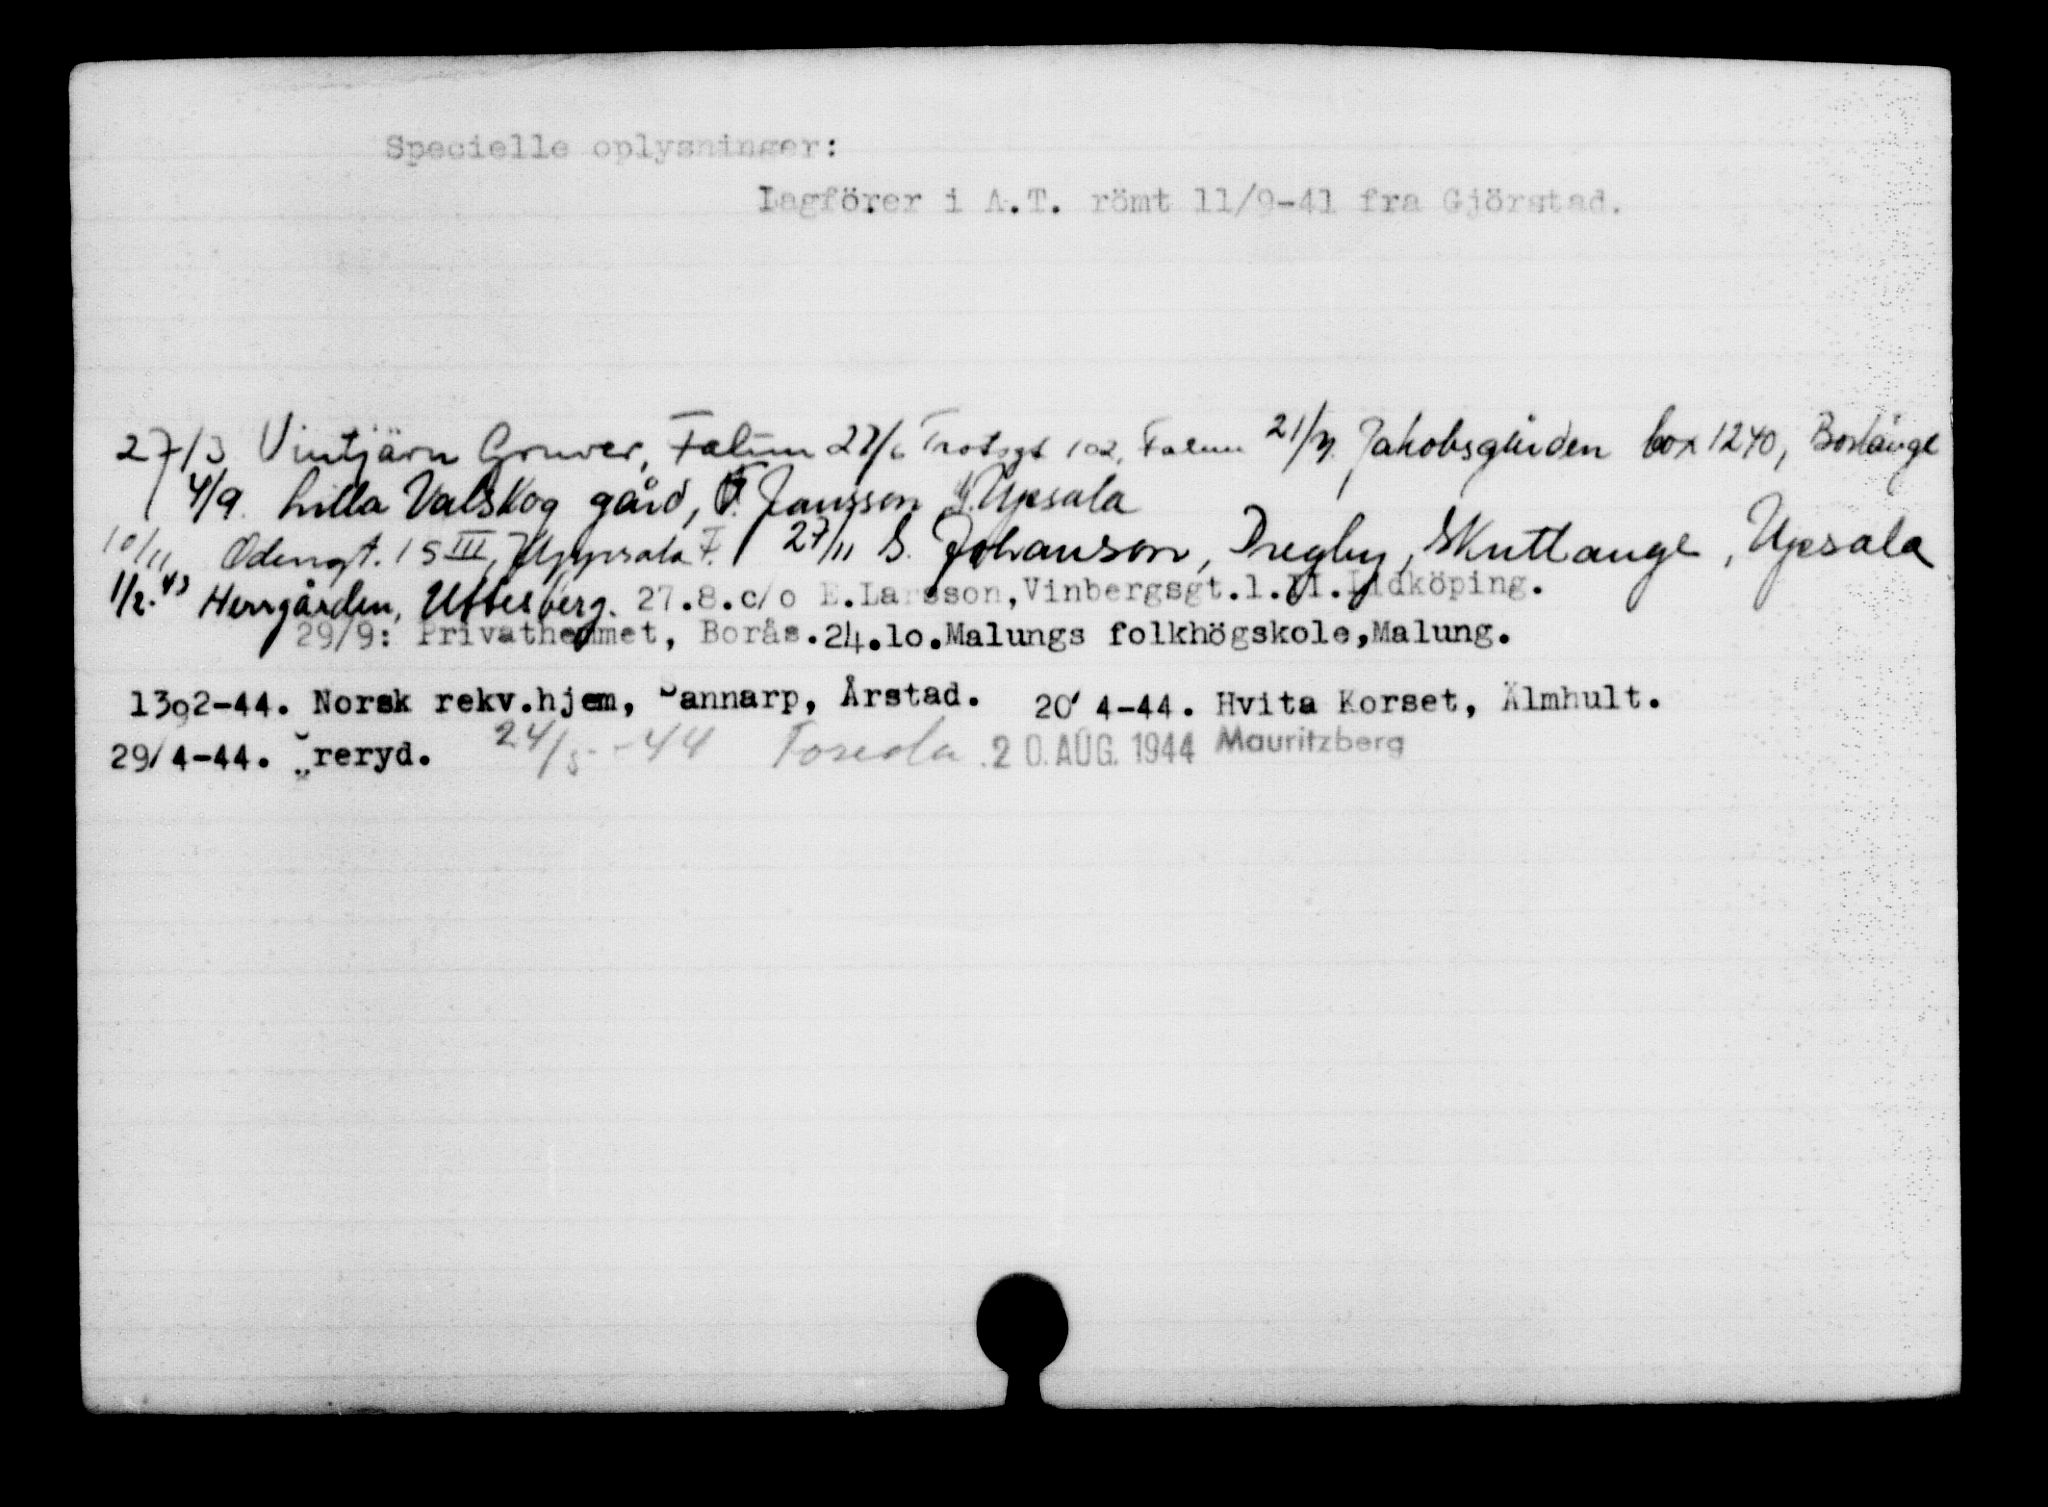 Specielle oplysninger:
Lagförer i A.T. römt 11/9-41 fra Gjörstad.
27/3 Vintjärn Gruver, Falun 27/6 Trotsgt 102, Falun 21/7. Jakobsgården box 1240, Borlänge
4/9. Lilla Valskog gård, Jansson, Upsala
10/11 Odengt. 15 III, Uppsala F. 27/11 G. Johanson, Dregby, Skuttange, Upsala
1/2.43 Herrgården, Uttersberg. 27.8.c/o E.Larsson,Vinbergsgt.1.II.Lidköping.
29/9: Privathemmet, Borås.24.10.Malungs folkhögskole,Malung.
1392-44. Norsk rekv.hjem, Sannarp, Årstad. 20' 4-44. Hvita Korset, Älmhult.
29/4-44. Öreryd. 24/5-44 Toseda 20.AUG. 1944 Mauritzberg